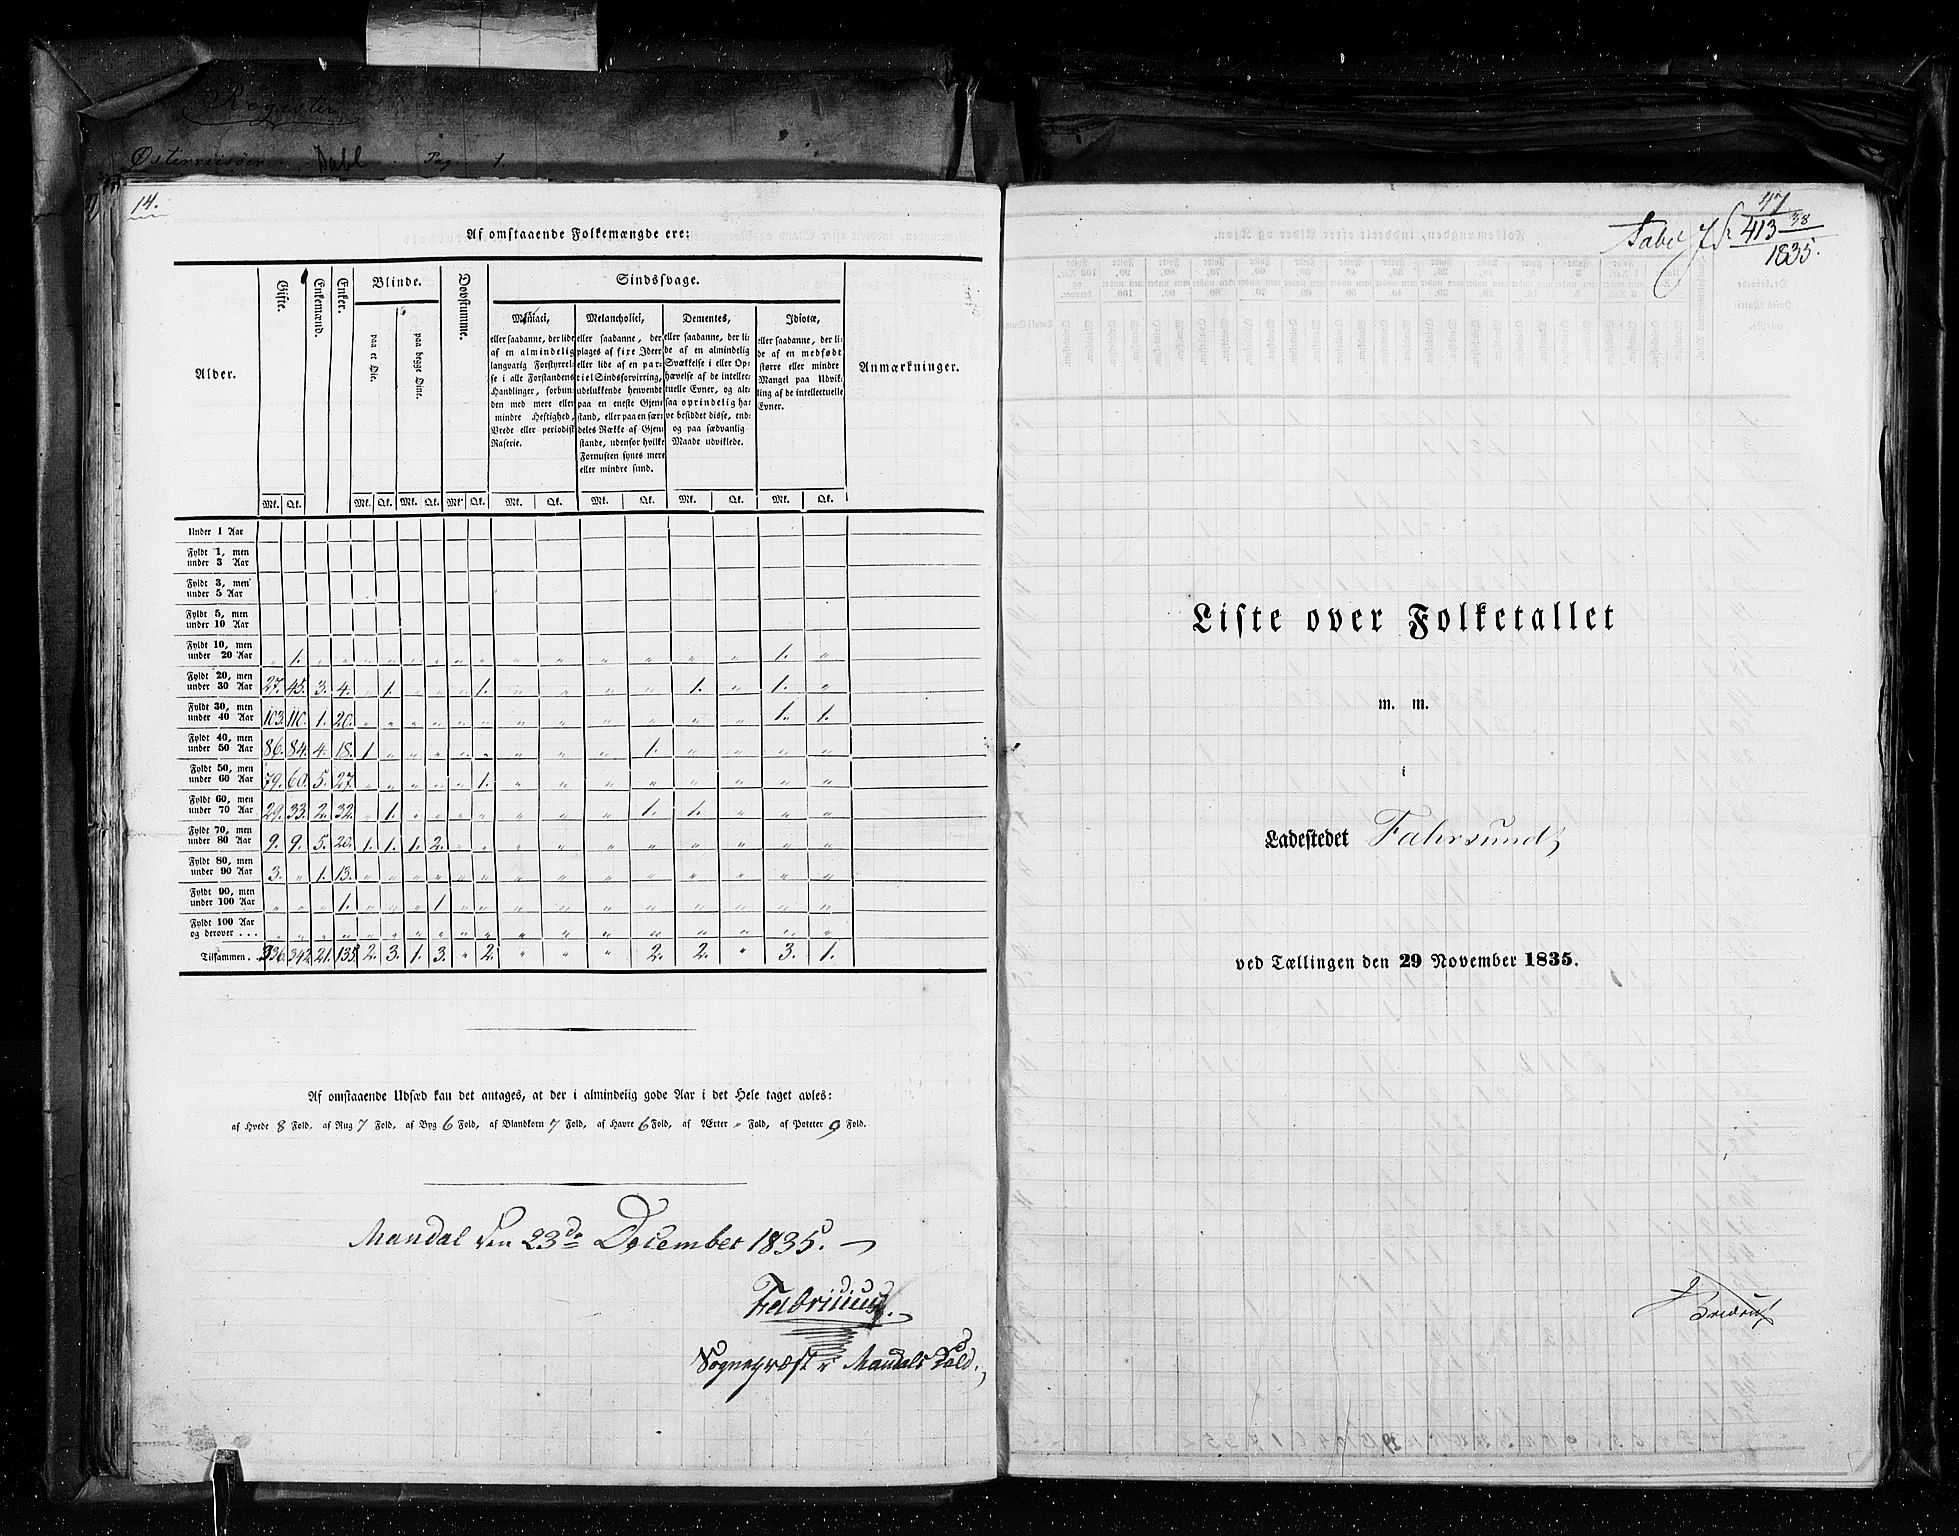 Register
Østerriisöer Pag 1.
14.
Af omstaaende Folkemængde ere:
Alder.
Gifte.
Enkemænd.
Enker.
Blinde.
paa et Øie.
paa begge Øine.
Døvstumme.
Sindssvage.
Maniaci,
eller saadanne, der lide
af en almindelig
langvarig Forstyrrel-
se i alle Forstandens
Handlinger, forbun-
den med mere eller
mindre Heftighed,
Vrede eller periodisk
Raserie.
Melancholici,
eller saadanne, der
plages af fixe Ideer
eller lide af en par-
tiel Sindsforvirring,
udelukkende henvendt
paa en eneste Gjen-
stand, eller paa en sær-
deles Række af Gjen-
stande, udenfor hvilke
Fornuften synes mere
eller mindre sund.
Dementes,
eller saadanne, der li-
de af en almindelig
Svækkelse i eller Op-
hævelse af de intellec-
tuelle Evner, og alt-
saa oprindelig ha-
ve besiddet disse, end-
og paa sædvanlig
Maade udviklede.
Idiotæ,
eller saadanne, der li-
de af en medfødt
større eller mindre
Mangel paa Udvik-
ling af de intellectuelle
Evner.
Anmærkninger.
Mk. Qk. Mk. Qk. Mk. Qk. Mk. Qk. Mk. Qk. Mk. Qk. Mk. Qk. Mk. Qk.
Under 1 Aar
Fyldt 1, men
under 3 Aar
Fyldt 3, men
under 5 Aar
Fyldt 5, men
under 10 Aar
Fyldt 10, men
under 20 Aar „ 1. „ „ „ „ „ „ „ „ „ „ „ „ „ „ 1. „
Fyldt 20, men
under 30 Aar 27. 45. 3. 4. „ 1. „ „ „ 1. „ „ „ „ 1. „ 1. „
Fyldt 30, men
under 40 Aar 103. 110. 1. 20. „ „ „ „ „ „ „ „ „ „ „ „ 1. 1.
Fyldt 40, men
under 50 Aar 86. 84. 4. 18. 1 „ „ „ „ „ „ „ „ 1. „ „ „ „
Fyldt 50, men
under 60 Aar 79. 60. 5. 27. „ „ „ „ „ 1. „ „ „ „ „ „ „ „
Fyldt 60, men
under 70 Aar 29. 33. 2. 32. „ 1. „ „ „ „ „ „ „ 1. 1. „ „ „
Fyldt 70, men
under 80 Aar 9. 9. 5. 20. 1. 1. 1. 2. „ „ „ „ „ „ „ „ „ „
Fyldt 80, men
under 90 Aar 3. „ 1. 13. „ „ „ „ „ „ „ „ „ „ „ „ „ „
Fyldt 90, men
under 100 Aar „ „ „ 1. „ „ „ 1 „ „ „ „ „ „ „ „ „ „
Fyldt 100 Aar
og derover . . . „ „ „ „ „ „ „ „ „ „ „ „ „ „ „ „ „ „
Tilsammen . . 336. 342. 21. 135. 2. 3. 1. 3. „ 2. „ „ „ 2. 2. „ 3. 1.
Af omstaaende Udsæd kan det antages, at der i almindelig gode Aar i det Hele taget avles:
af Hvede 8 Fold, af Rug 7 Fold, af Byg 6 Fold, af Blandkorn 7 Fold, af Havre 6 Fold, af Ærter „ Fold, af Poteter 9 Fold.
Mandal den 23de December 1835.
Fabricius.
Sognepræst i Mandals Præstegjeld.
47
Tabel 413 38
1835.
Liste over Folketallet
m. m.
i
Ladestedet Fahrsund,
ved Tællingen den 29 November 1835.